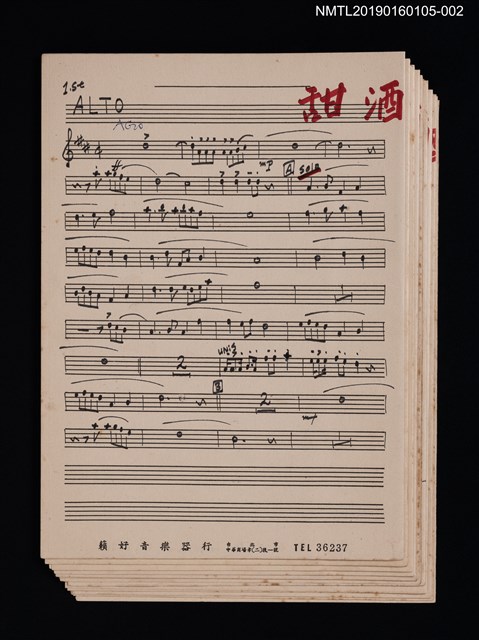 NMTL20190160105-002
1.st
ALTO
甜酒
mp
A solo
unis
2
B
2
mf
好音樂器行
TEL 36237